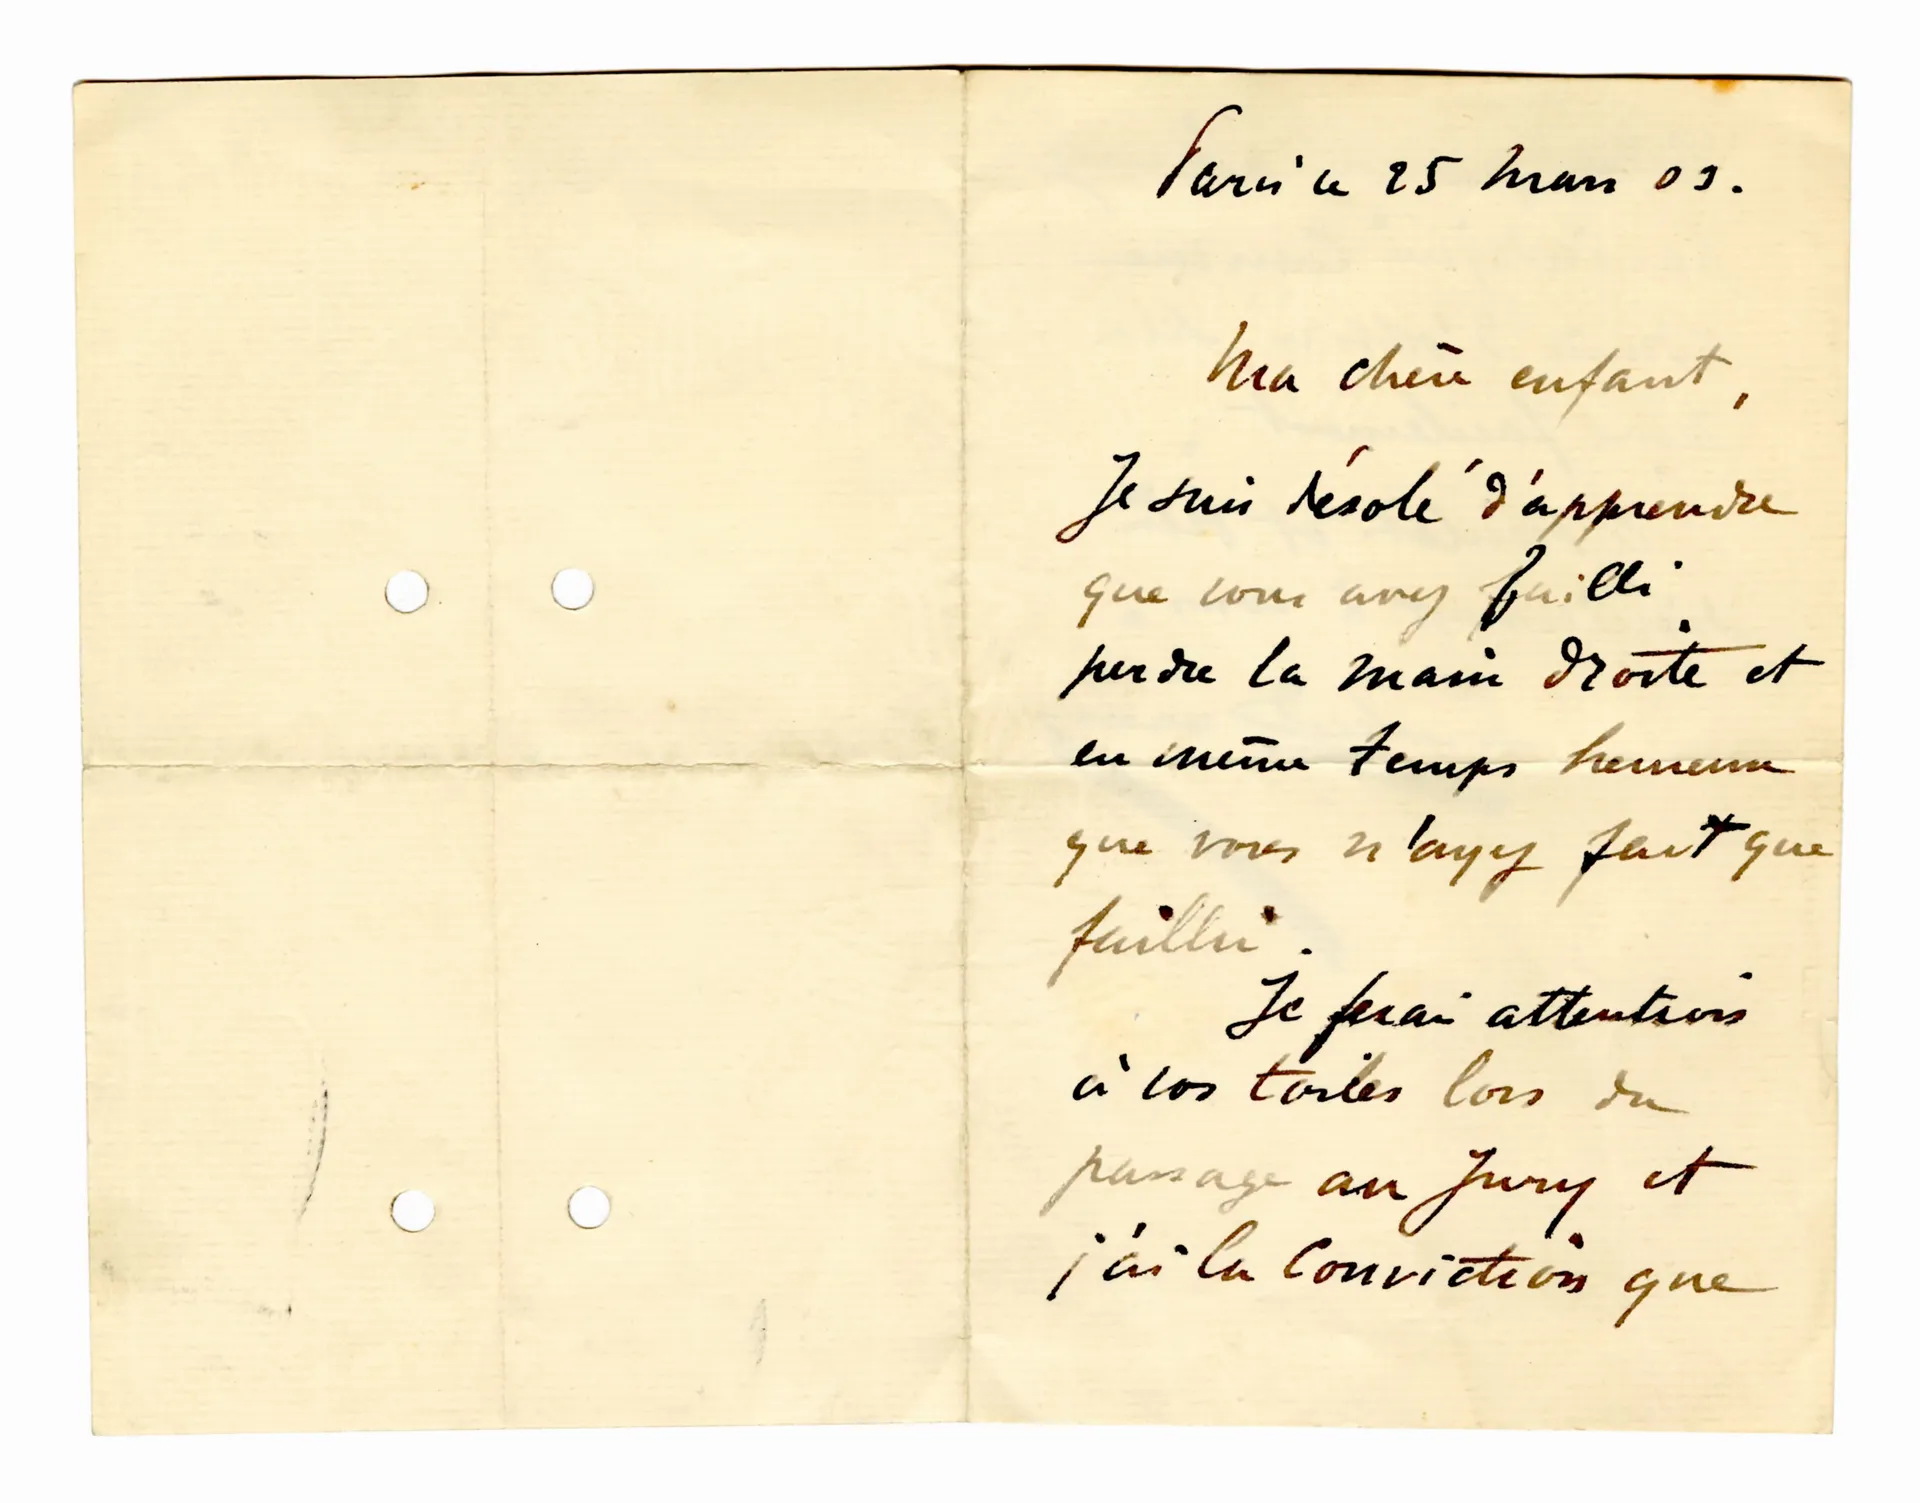 Paris le 25 Mars 03.
Ma chère enfant,
Je suis désolé d'apprendre
que vous avez failli
perdre la main droite et
en même temps heureux
que vous n'ayez fait que
failli.
Je ferai attention
à vos toiles lors du
passage au Jury et
j'ai la Conviction que